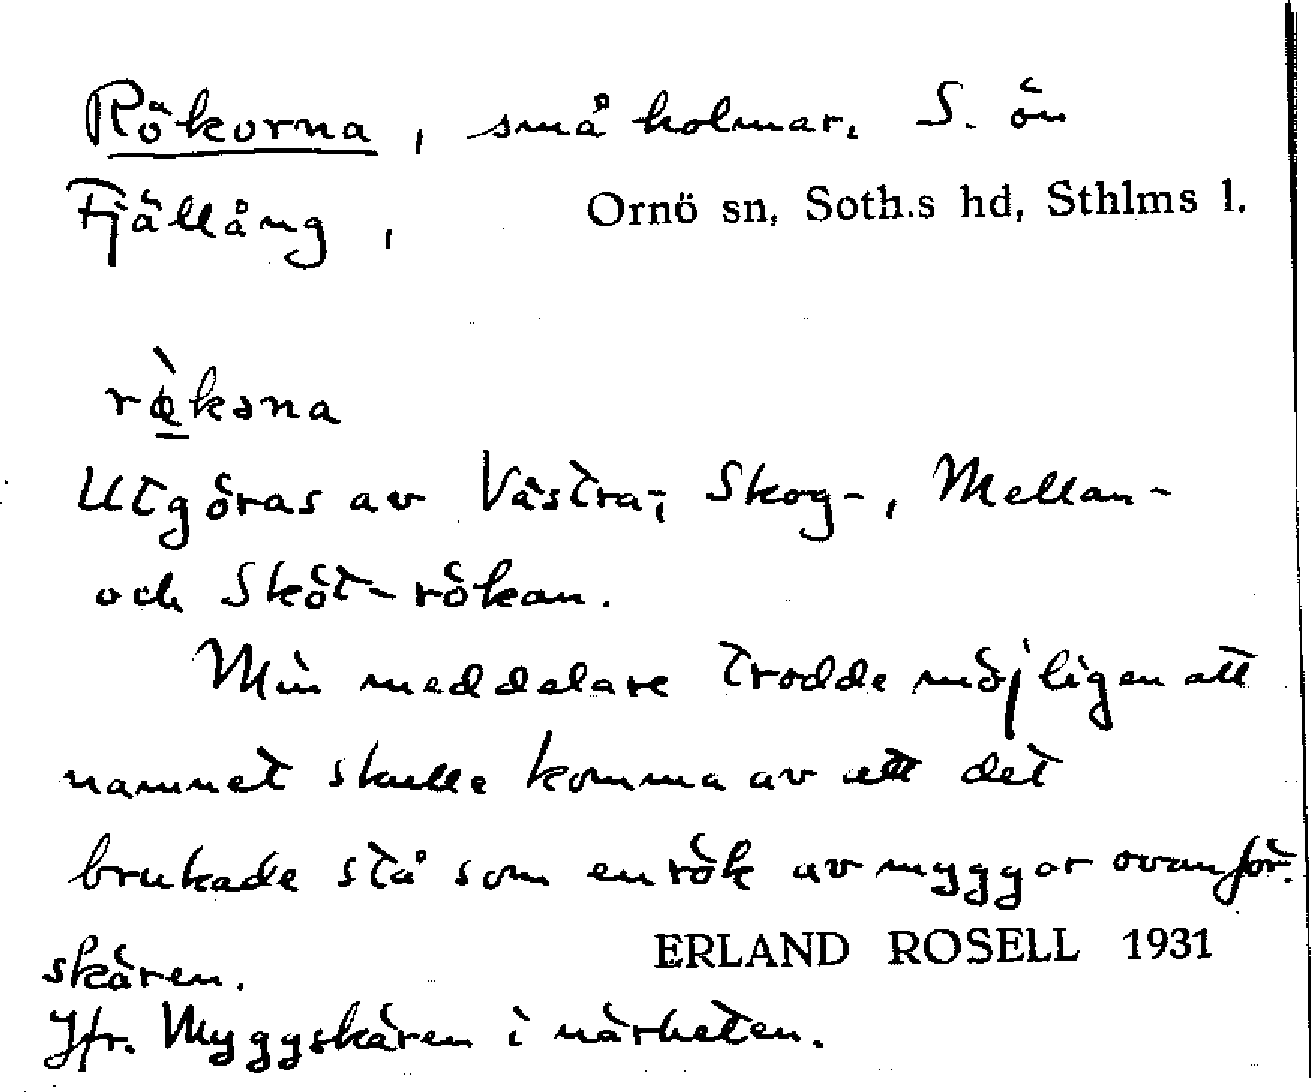 Rökorna, små holmar. S. ön
Fjällång, Ornö sn, Soth.s hd, Sthlms l.
rø̀kəna
Utgöras av Västra-, Skog-, Mellan-
och Sköt-rökan.
Min meddelare trodde möjligen att
namnet skulle komma av att det
brukade stå som en rök av myggor ovanför
skären.
ERLAND ROSELL 1931
Jfr. Myggskären i närheten.